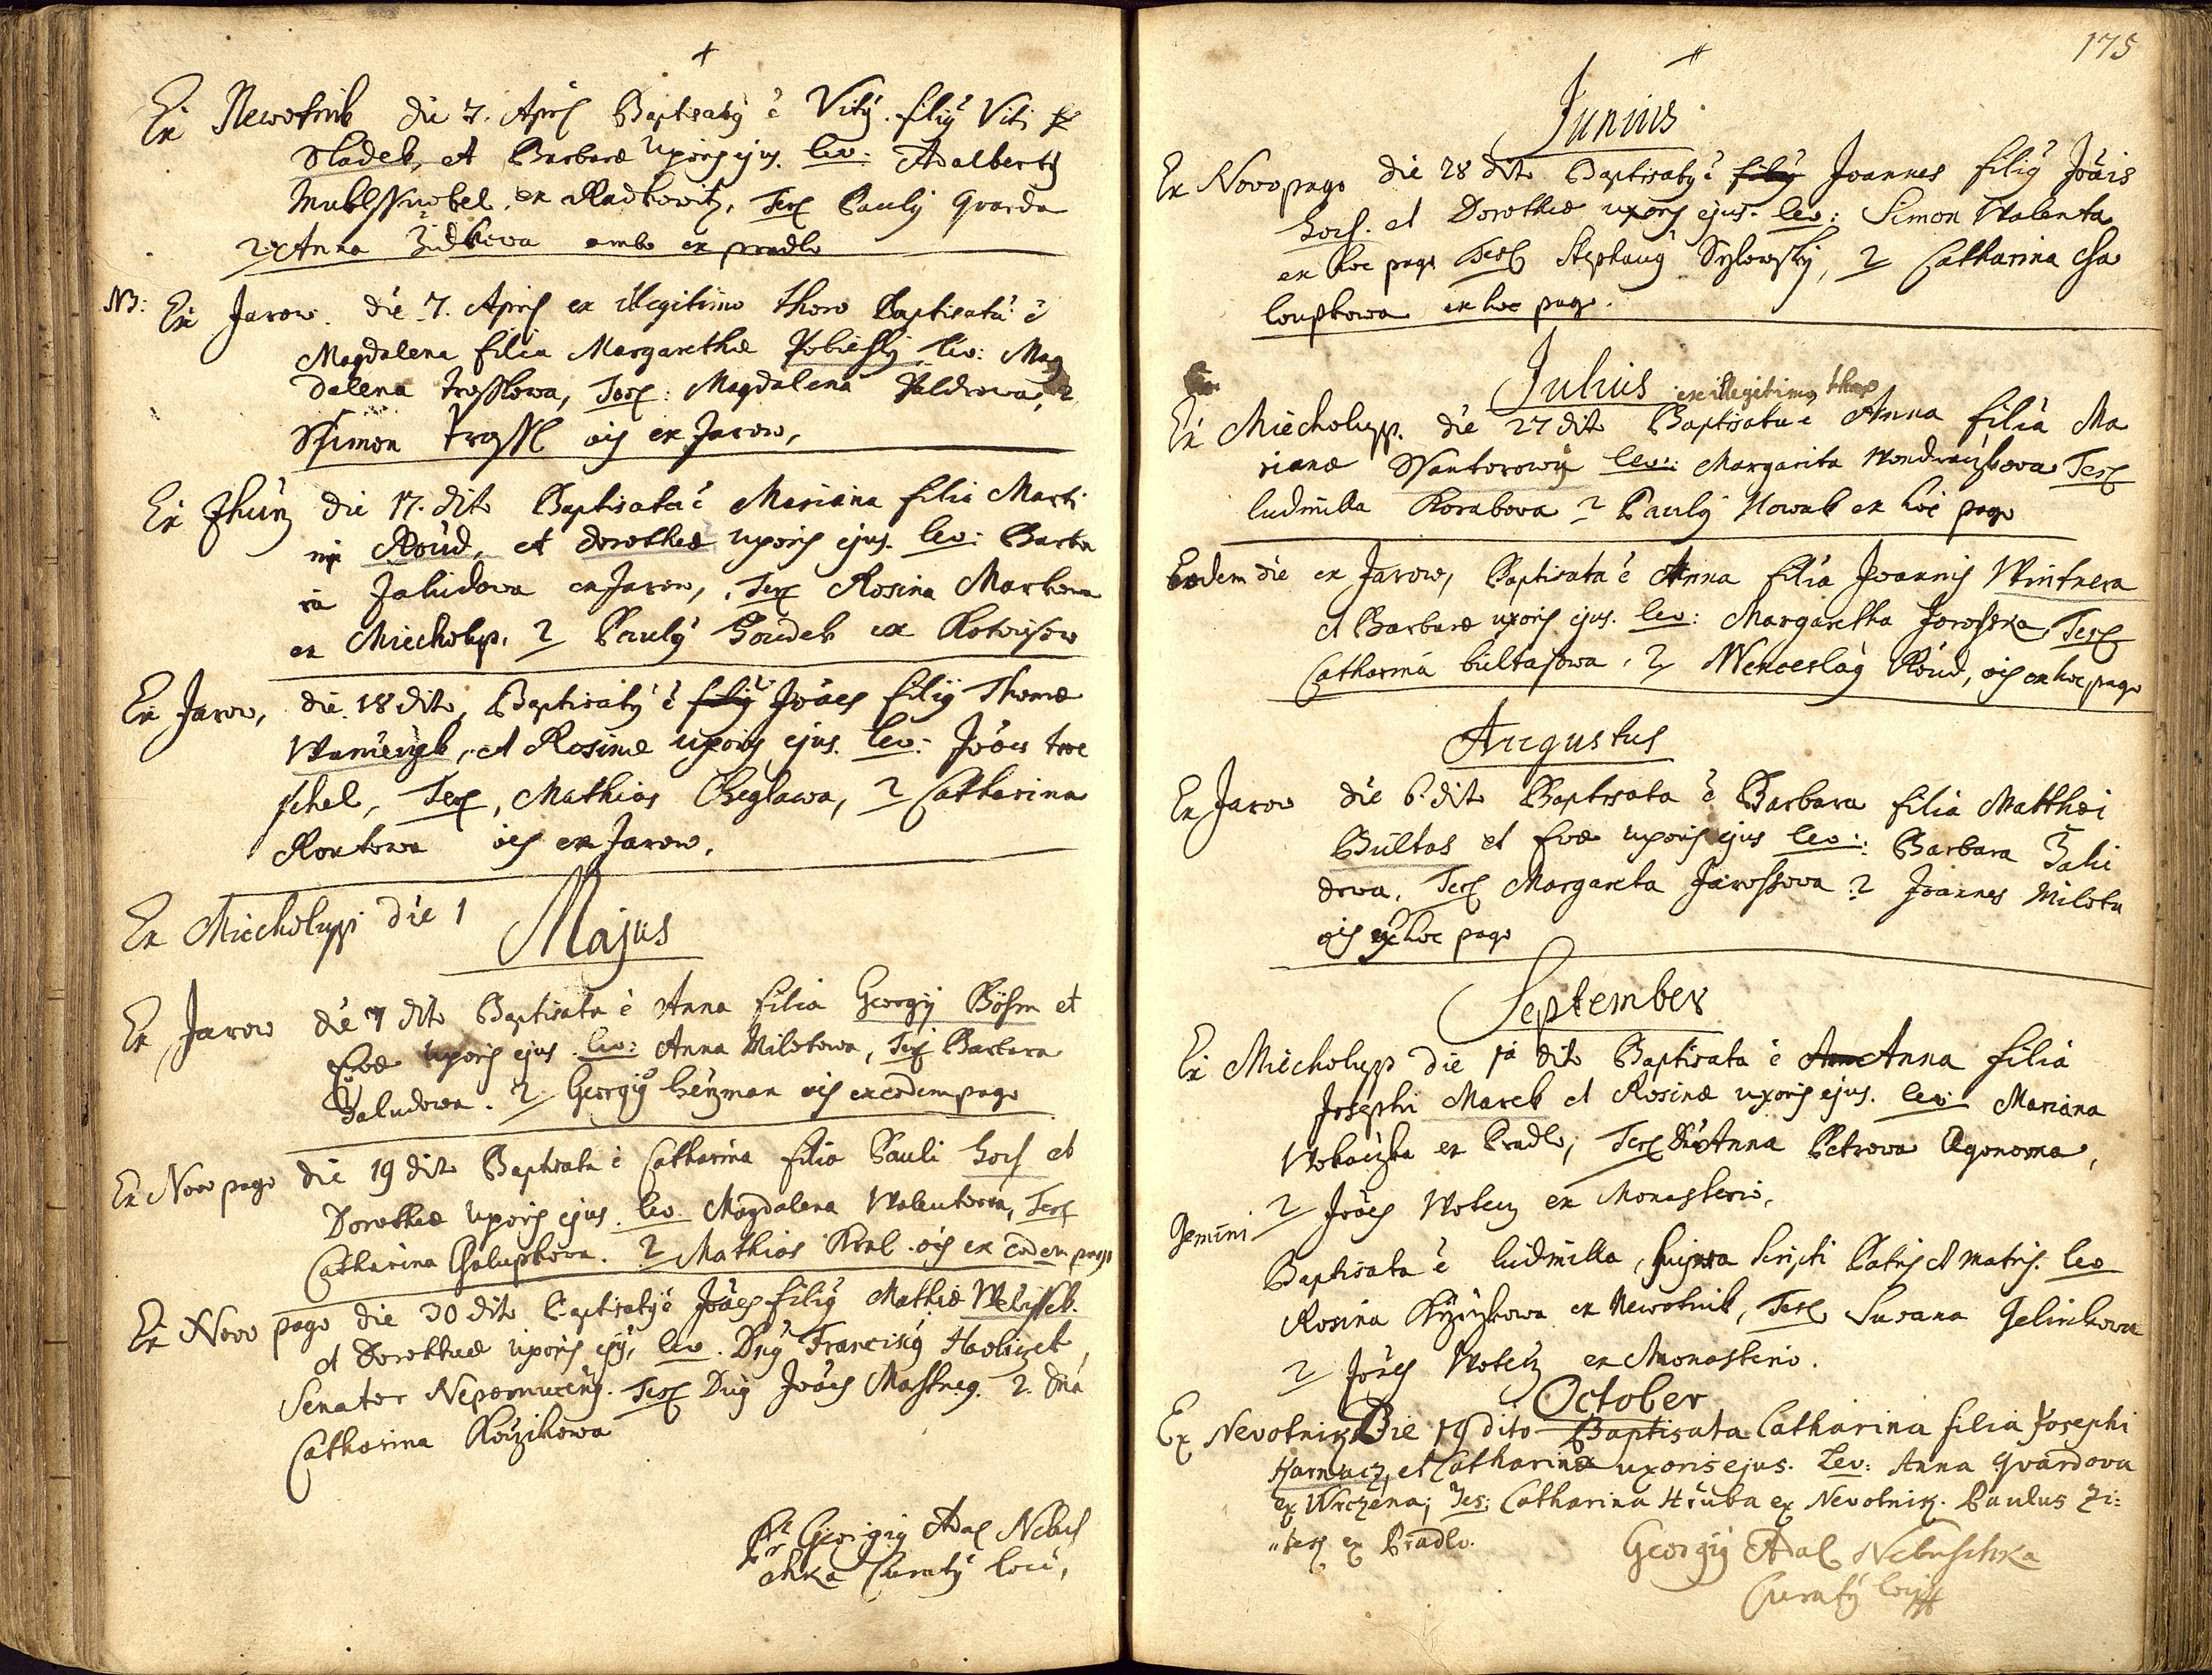 Ex Newotnik die 7. Apris Baptisatꝰ ẽ Vitꝰ filiꝰ Viti
Sladek, et Barbaræ uxoris ejus. lev: Adalbertꝰ
ex Radkowitz, Tes Paulꝰ Qvarda
2 Anna Židkowa ambo ex pradlo
NB: Ex Jarow. die 7. Apris ex illegitimo thoro Baptisata ẽ
Magdalena filia Margarethæ lev: Mag
dalena Trosslowa, Tes: Magdalena Valdrowa, 2
Simon Trossl ois ex Jarow,
Ex Zhurz die 17. dito Baptisata ẽ Mariana filia Marti
ni Roud, et Dorotheæ uxoris ejus. lev: Barba
ra Zaludowa ex Jarow, Tes Rosina Markowa
ex Miecholup. 2 Paulꝰ Houdek ex Kotausow
Ex Jarow, die 18 dito, Baptisatꝰ ẽ filiꝰ Joães filiꝰ Thomæ
et Rosinæ uxoris ejus. lev: Joães Tro
schel, Tes, Mathias Cheglawa, 2 Catharina
Rontowa ois ex Jarow.
Ex Miecholupp die 1
Majus
Ex Jarow die 7 dito Baptisata ẽ Anna filia Georgij Böhm et
Evæ uxoris ejus lev: Anna Milotowa, Tes Barbara
Žaludowa. 2 Georgiꝰ Heyman ois ex eodem pago
Ex Novo pago die 19 dito Baptisata ẽ Catharina filia Pauli Hoch et
Dorotheæ uxoris ejus. lev. Magdalena Walentowa, Tes
Catharina Chalupkowa. 2 Mathias Kral ois ex eodem pago
Ex Novo pago die 30 dito Baptisatꝰ ẽ Joães filiꝰ Mathiæ
et Dorotheæ uxoris ejꝰ, lev. Dnꝰ Franciscꝰ Havliczek,
Senator Nepomucenꝰ. Tes Dnꝰ Joães Mastneg. 2. Dna
Catharina Kouzikowa
Pr Georgiꝰ Adal Nebus
chka Curatꝰ loci,
175
Junius
Ex Novo pago die 28 dito Baptisatꝰ ẽ filiꝰ Joannes filiꝰ Joãis
Hoch. et Dorotheæ uxoris ejus. lev: Simon Walenta
ex hoc pago Tes Stephanꝰ Sylowsky, 2 Catharina Cha
loupkowa ex hoc pago.
Julius
ex illegitimo thoro
Ex Miecholupp. die 27 dito Baptisata ẽ Anna filia Ma
rianæ Santorowy lev: Margarita Wondraczkowa Tes
Ludmilla Korabowa 2 Paulꝰ Nowak ex hoc pago
Eodem die ex Jarow, Baptisata ẽ Anna filia Joannis Wintnera
et Barbaræ uxoris ejus. lev: Margaretha Tes
Catharina Bultasowa, 2 Wenceslaꝰ Roud, ois ex hoc pago
Augustus
Ex Jarow die 6 dito Baptisata ẽ Barbara filia Matthæi
Bultas et Evæ uxoris ejus lev: Barbara Žalu
dowa, Tes Margareta Jarossowa 2 Joannes Milota
ois ex hoc pago
September
Ex Miecholupp die 1a dito Baptisata ẽ Anna filia
Josephi Marek et Rosinæ uxoris ejus. lev: Mariana
ex Pradlo, Tes Anna Petrowa
2 Joães Wotecz ex Monasterio,
Gemini
Baptisata ẽ Ludmilla, supra scripti Patris et matris. lev
Rosina ex Newotnik, Tes Susana Gelinkowa
2 Joães Wotecz ex Monasterio.
October
Ex Nevotnik Die 19 dito Baptisata Catharina filia Josephi
Harnacz, et Catharinæ uxoris ejus. Lev: Anna Qvardova
ex Wrczena; Tes: Catharina Hruba ex Nevotnik. Paulus Zi:
"tek ex Pradlo.
Georgiꝰ Adal Nebuschka
Curatꝰ loci